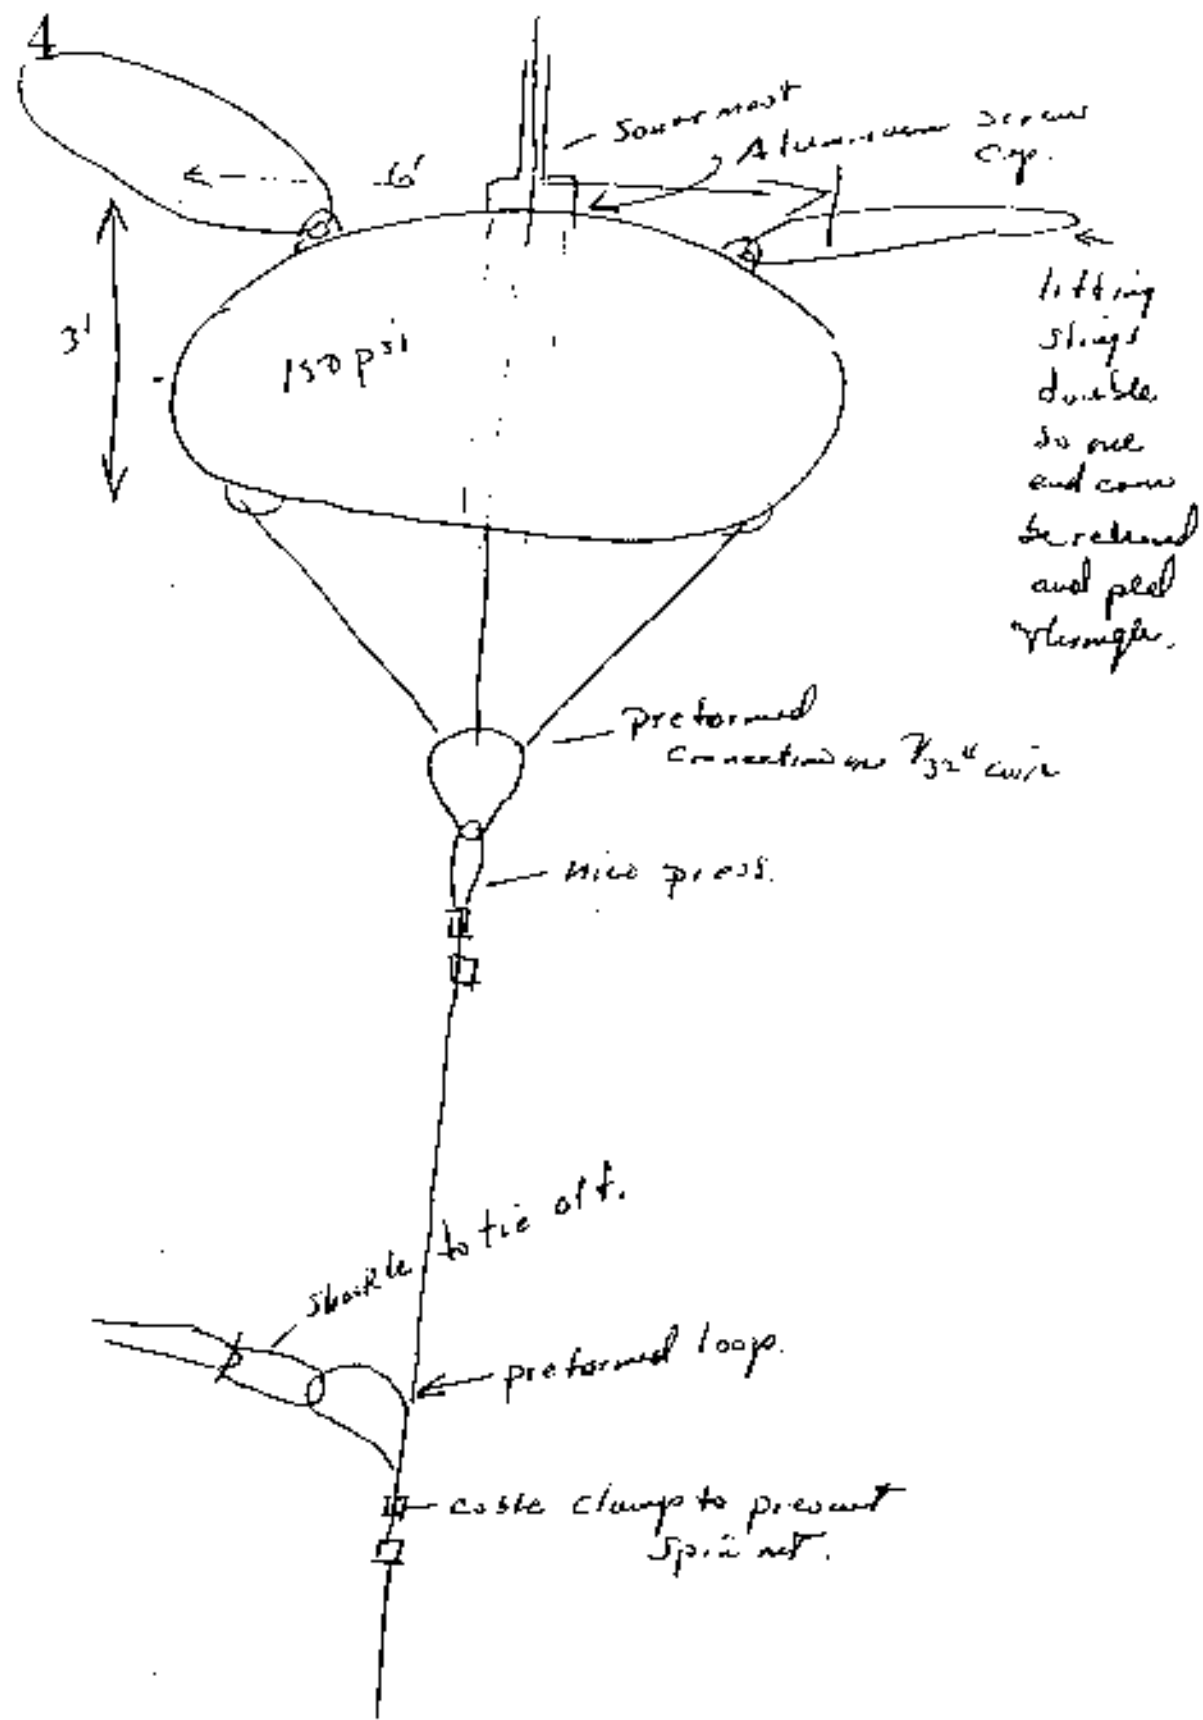 4
Sonar mast
Aluminum screw
cap.
6'
3'
150 psi
lifting
slings
double
so one
end can
be released
and
through.
preformed
connection on 7/32" wire
nico press.
shackle to tie off.
preformed loop.
cable clamp to prevent